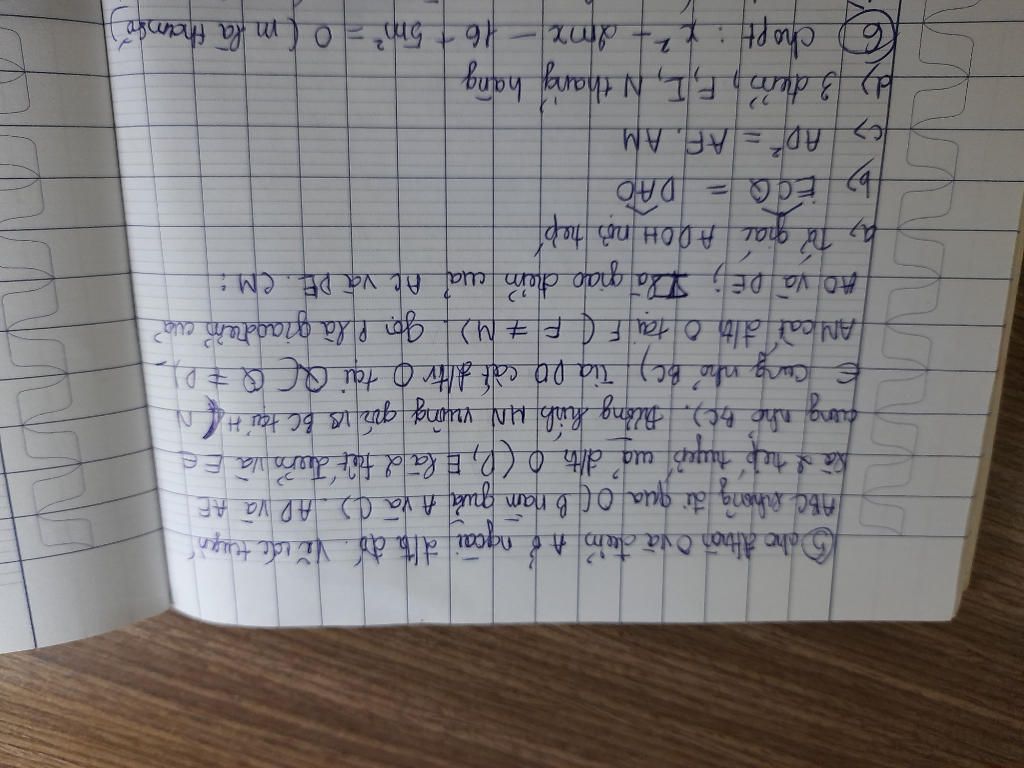 ⑤ cho đtròn O và điểm A ở ngoài đtr đó. Vẽ các tuyến
ABC không đi qua O (B nằm giữa A và C). AD và AE
là 2 tiếp tuyến của đtr O (D, E là 2 tiếp điểm và E ∈
cung nhỏ BC). Đường kính MN vuông góc vs BC tại H (N
∈ cung nhỏ BC). Tia DO cắt đtr O tại Q (Q ≠ D).
AM cắt đtr O tại F (F ≠ M). Gọi P là giao điểm của
AO và DE; I là giao điểm của AC và DE. CM:
a) Tứ giác ADOH nội tiếp
b) ECQ = DAO
c) AD² = AF. AM
d) 3 điểm F, I, N thẳng hàng
⑥ cho pt: x² - 2mx - 16 + 5m² = 0 (m là tham số)